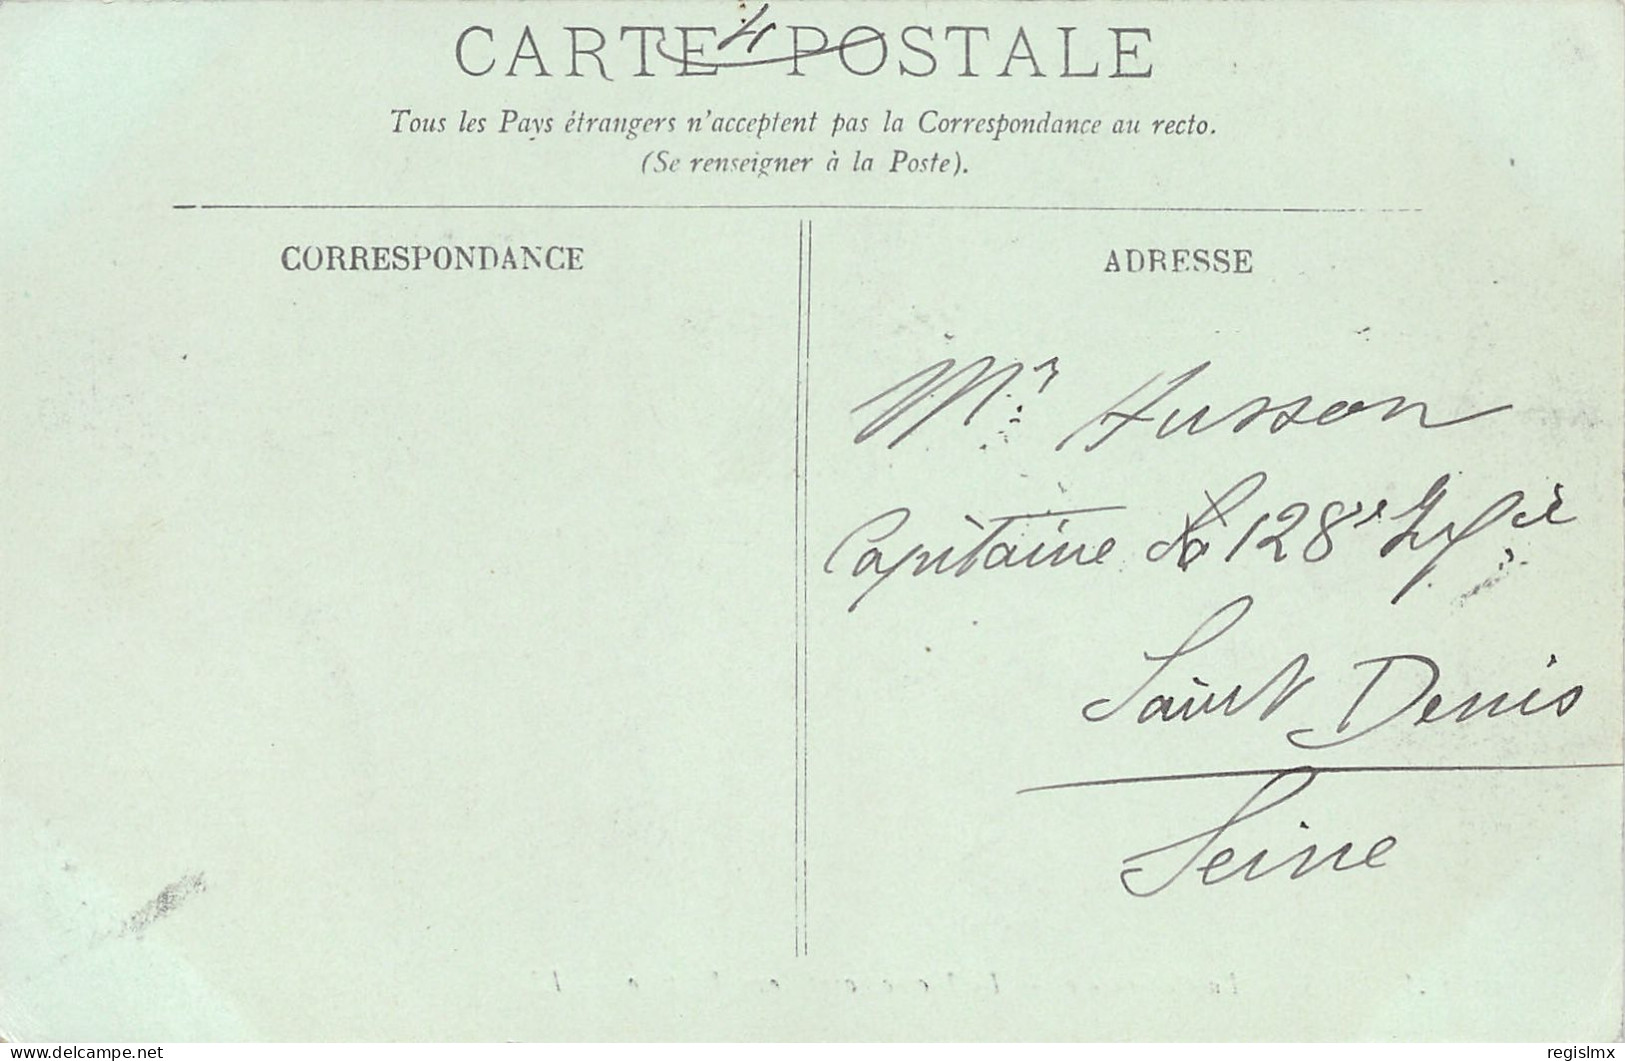 CARTE POSTALE
4
Tous les Pays étrangers n'acceptent pas la Correspondance au recto.
(Se renseigner à la Poste).
CORRESPONDANCE
ADRESSE
Mr. Husson
Capitaine 128e
Saint Denis
Seine
delcampe.net
regislmx